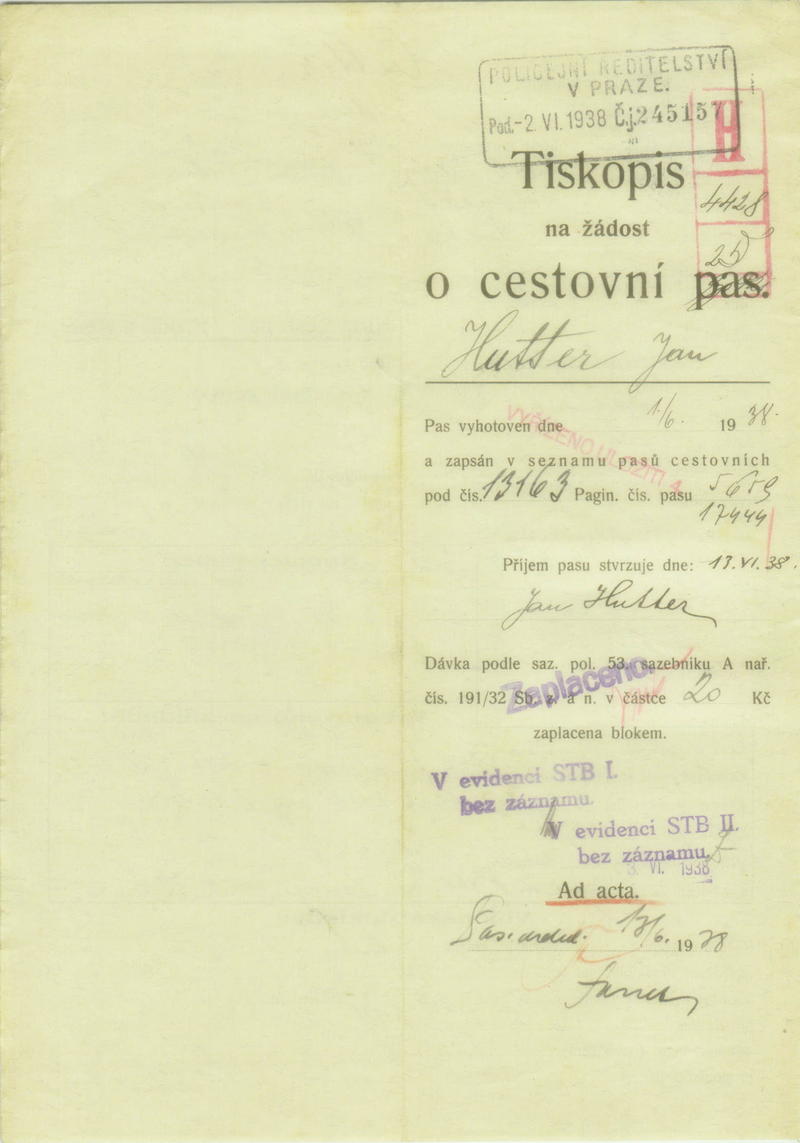 POLICEJNÍ ŘEDITELSTVÍ
V PRAZE.
Pod.-2. VI. 1938 Č.j. 245157
H
Tiskopis
4428
na žádost
25
o cestovní pas.
Hutter Jan
Pas vyhotoven dne 1./6. 1938.
VYŘÍZENO ULOŽITI
a zapsán v seznamu pasů cestovních
pod čís. 13163 Pagin. čís. pasu
17444
Příjem pasu stvrzuje dne: 17. VI. 38.
Jan Hutter
Dávka podle saz. pol. 53. sazebníku A nař.
Zaplaceno.
čís. 191/32 Sb. z. a n. v částce 20 Kč
zaplacena blokem.
V evidenci STB I.
bez záznamu.
V evidenci STB II.
bez záznamu.
3. VI. 1938
Ad acta.
13/6. 1938